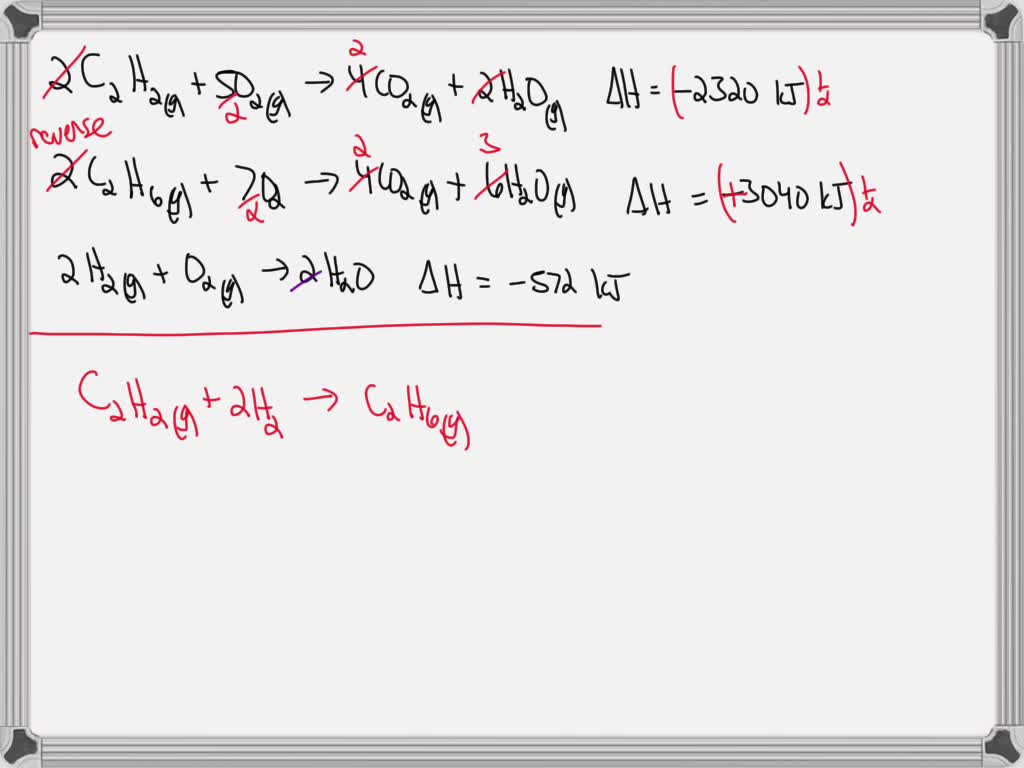 2C₂H₂(g) + 5O₂(g) → 4CO₂(g) + 2H₂O(g) ΔH = (-2320 kJ) 1/2
2
2
reverse
2C₂H₆(g) + 7O₂ → 4CO₂(g) + 6H₂O(g) ΔH = (+3040 kJ) 1/2
2
2 3
2H₂(g) + O₂(g) → 2H₂O ΔH = -572 kJ
C₂H₂(g) + 2H₂ → C₂H₆(g)